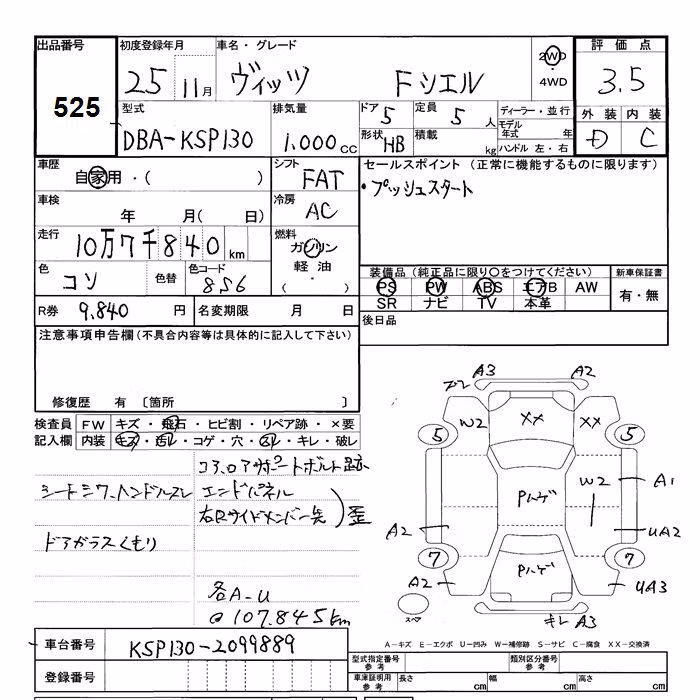 出品番号 初度登録年月 車名・グレード 2WD・4WD 評価点
525 25 11月 ヴィッツ Fシエル 3.5
型式 排気量 ドア 5 定員 5人 ディーラー・並行 外装 内装
DBA-KSP130 1.000cc 形状 HB 積載 kg モデル年式 年 D C
ハンドル 左・右
車歴 シフト セールスポイント (正常に機能するものに限ります)
自家用・( ) FAT ・プッシュスタート
車検 年 月( 日) 冷房 AC
走行 10万7千840km 燃料 ガソリン
軽油
( ・ )
色 コソ 色替 色コード 8S6 装備品 (純正品に限り○をつけてください) 新車保証書
PS PW ABS エアB AW 有・無
SR ナビ TV 本革
R券 9.840円 名変期限 月 日 後日品
注意事項申告欄(不具合内容等は具体的に記入して下さい)
修復歴 有 〔箇所 〕
検査員 FW キズ・飛石・ヒビ割・リペア跡・×要
記入欄 内装 キズ・汚レ・コゲ・穴・スレ・キレ・破レ
コアロアサポートボルト跡
シートシワ、ハンドルスレ エンドパネル
右Rサイドメンバー先 歪
ドアガラスくもり
各A-U
@107.845km
A3 A2
W2 XX XX
5 5
Pハゲ W2 A1
A2 UA2
7 7
A2 Pハゲ UA3
スペア キレ A3
A-キズ E-エクボ U-凹み W-補修跡 S-サビ C-腐食 XX-交換済
車台番号 KSP130-2099889
登録番号
型式指定番号 参考 類別区分番号 参考
車庫証明用 参考 長さ cm 幅 cm 高さ cm